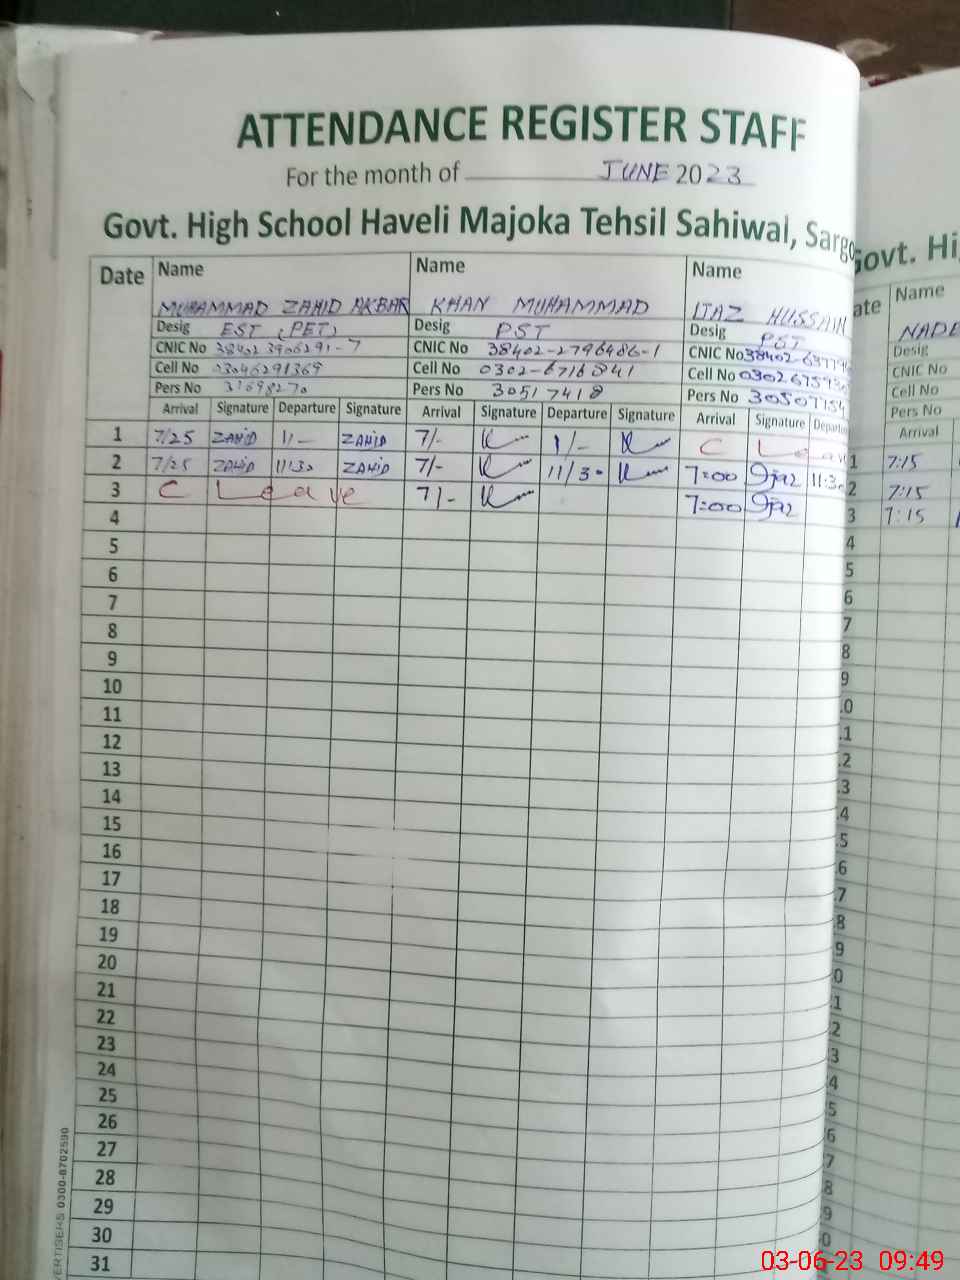 ATTENDANCE REGISTER STAFF
For the month of JUNE 2023
Govt. High School Haveli Majoka Tehsil Sahiwal, Sargo
Govt. Hi
Date Name Name Name
MUHAMMAD ZAHID AKBAR KHAN MUHAMMAD IJAZ HUSSAIN
Desig EST (PET) Desig PST Desig PST
CNIC No 38402 3906291-7 CNIC No 38402-2796486-1 CNIC No
Cell No 03046291369 Cell No 0302-6716841 Cell No
Pers No Pers No 30517418 Pers No
Arrival Signature Departure Signature Arrival Signature Departure Signature Arrival Signature
1 7/25 ZAHID 11- ZAHID 7/- 1/- C Leav
2 7/25 ZAHID 11:30 ZAHID 7/- 11/30 7:00 Ijaz 11:30
3 C Leave 7/- 7:00 Ijaz
4
5
6
7
8
9
10
11
12
13
14
15
16
17
18
19
20
21
22
23
24
25
26
27
28
29
30
31
ate Name
NADE
Desig
CNIC No
Cell No
Pers No
Arrival
1 7:15
2 7:15
3 7:15
4
5
6
7
8
9
.0
.1
.2
.3
.4
.5
.6
.7
.8
9
0
1
2
3
4
5
6
7
8
9
0
VERTISERS 0300-8702590
03-06-23 09:49